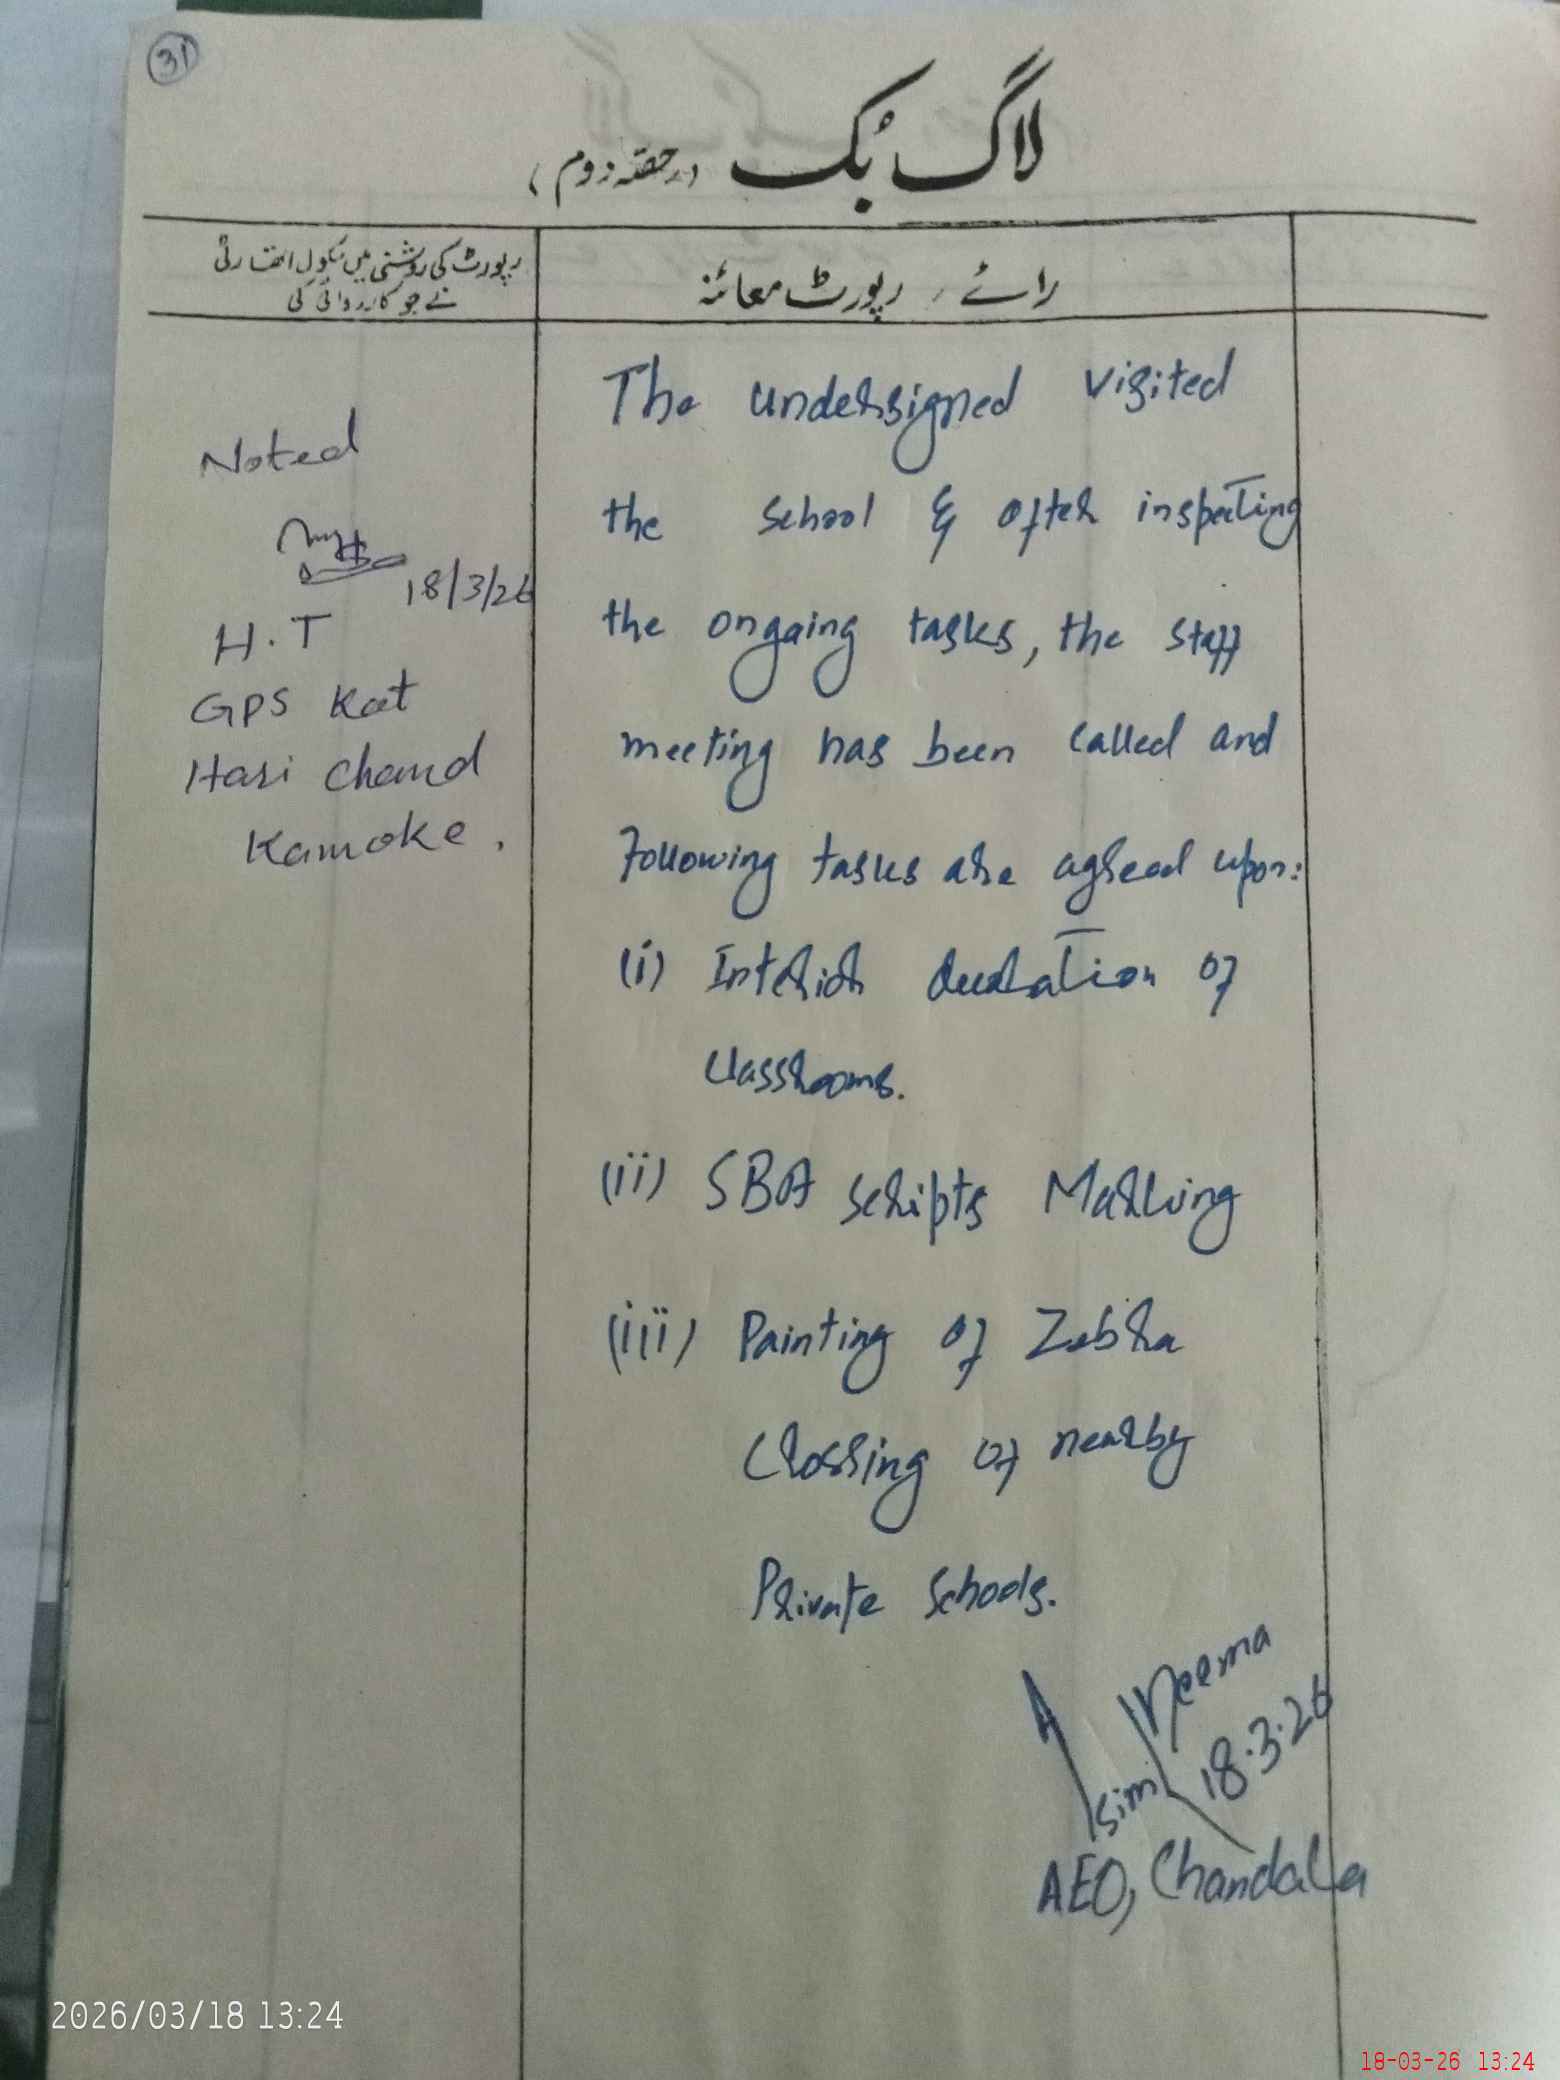 31
لاگ بُک (حصّہ دوم)
رائے / رپورٹ معائنہ
رپورٹ کی روشنی میں سکول اتھارٹی
نے جو کارروائی کی
The undersigned visited
the school & after inspecting
the ongoing tasks, the staff
meeting has been called and
Following tasks are agreed upon:
(i) Interior decoration of
classrooms.
(ii) SBA scripts Marking
(iii) Painting of Zebra
Crossing of nearby
Private schools.
Asim Neema
18.3.26
AEO, Chandala
Noted
18/3/26
H.T
GPS Kot
Hari Chand
Kamoke.
2026/03/18 13:24
18-03-26 13:24